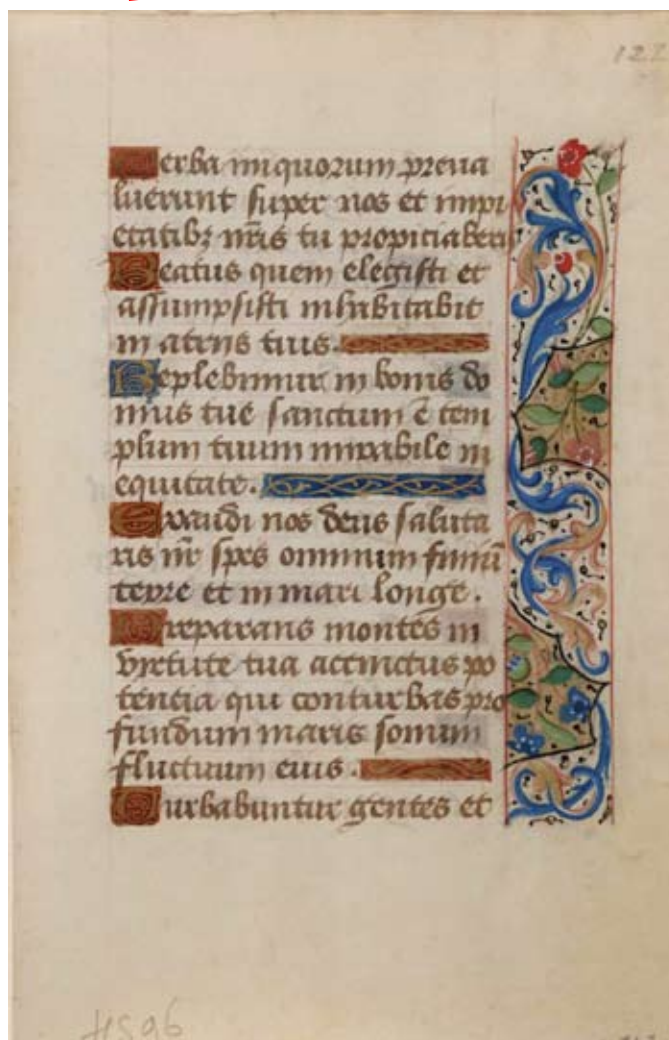 122
Verba iniquorum preva
luerunt super nos et impi
etatibꝫ nr̄is tu propiciaberis
Beatus quem elegisti et
assumpsisti inhabitabit
in atriis tuis.
Replebimur in bonis do
mus tue sanctum ē tem
plum tuum mirabile in
equitate.
Exaudi nos deus saluta
ris nr̄ spes omnium finiū
terre et in mari longe.
Preparans montes in
virtute tua accinctus po
tencia qui conturbas pro
fundum maris sonum
fluctuum eius.
Turbabuntur gentes et
4596